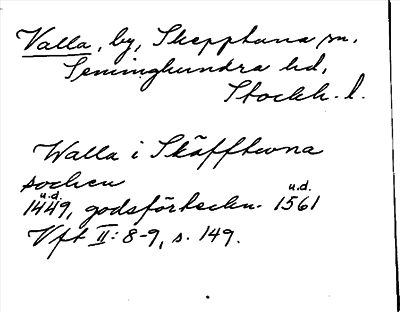 Valla, by, Skepptuna sn.
Seminghundra hd,
Stockh. l.
Walla i Skäfftwna
sochen
u.d. u.d.
1449, godsförteckn. 1561
Vft II: 8-9, s. 149.